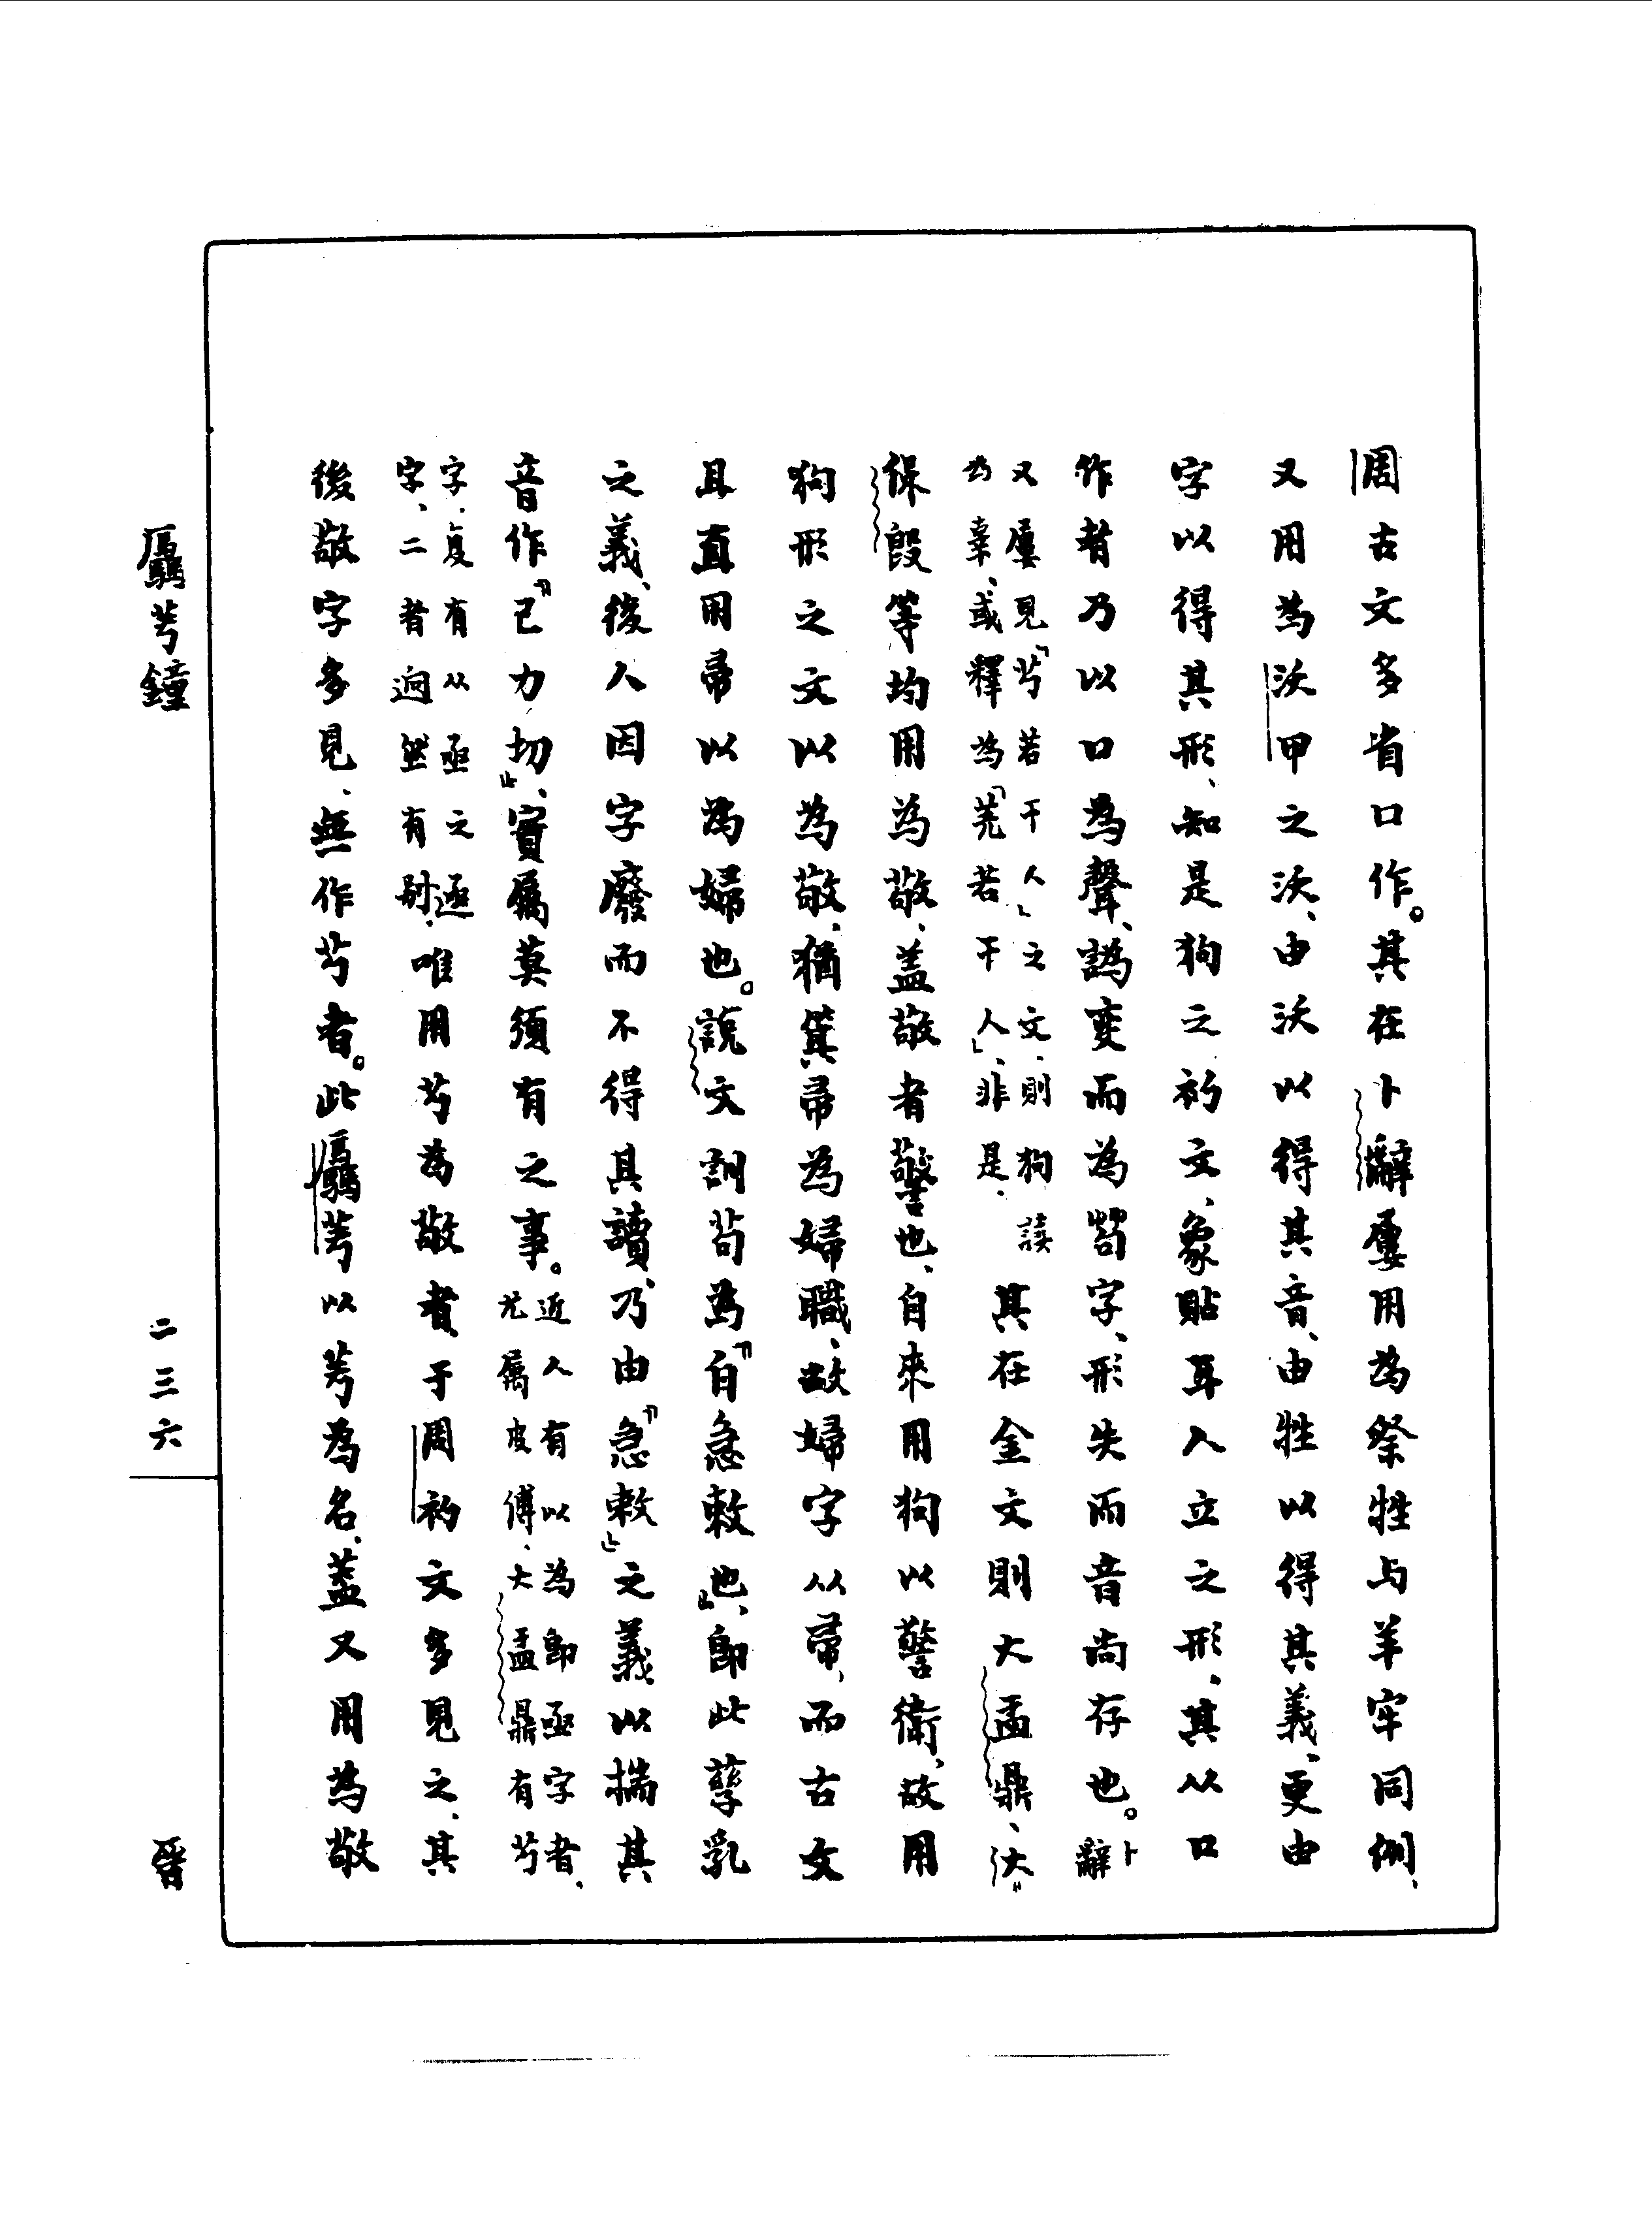 周古文多省口作。其在卜辭屢用為祭牲与羊牢同例、
又用為沃甲之沃、由沃以得其音、由牲以得其義、更由
字以得其形、知是狗之初文、象貼耳人立之形、其从口
作者乃以口為聲、譌變而為茍字、形失而音尚存也。卜辭
又屢見「芍若干人」之文、則狗誤
为辜、或釋為「羌若干人」、非是、
其在金文則大盂鼎、大
保𣪘等均用為敬、蓋敬者警也、自來用狗以警衛、故用
狗形之文以為敬、猶箕帚為婦職、故婦字从帚、而古文
且直用帚以為婦也。說文訓茍為「自急敕也」、即此孳乳
之義、後人因字廢而不得其讀、乃由「急敕」之義以揣其
音作「己力切」、實屬莫須有之事。
近人有以為即亟字者、
尤属皮傅、大盂鼎有芍
字、复有从亟之𨔝
字、二者迥然有别、
唯用芍為敬者、于周初文多見之、其
後敬字多見、無作芍者。此𠫑芍以芍為名、蓋又用為敬
芍鐘
二三六
晉